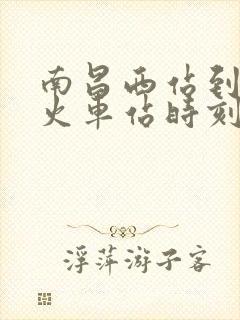 南昌西佔到
火車佔時刻
浮萍游子客